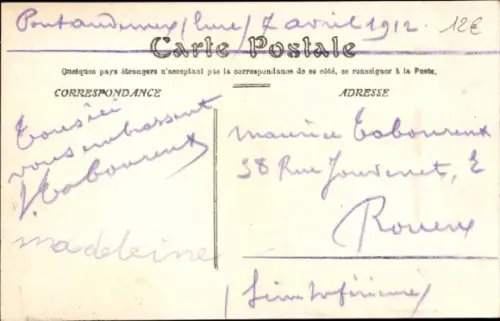 Pontaudemer / Eure / 7 avril 1912.
12€
Carte Postale
Quelques pays étrangers n'acceptant pas la correspondance de ce côté, se renseigner à la Poste.
CORRESPONDANCE
Tous ici
vous embrassent
J. Taboureux
madeleine
ADRESSE
maurice Taboureux
38 Rue Jouvenet, E
Rouen
/ Seine Inférieure /